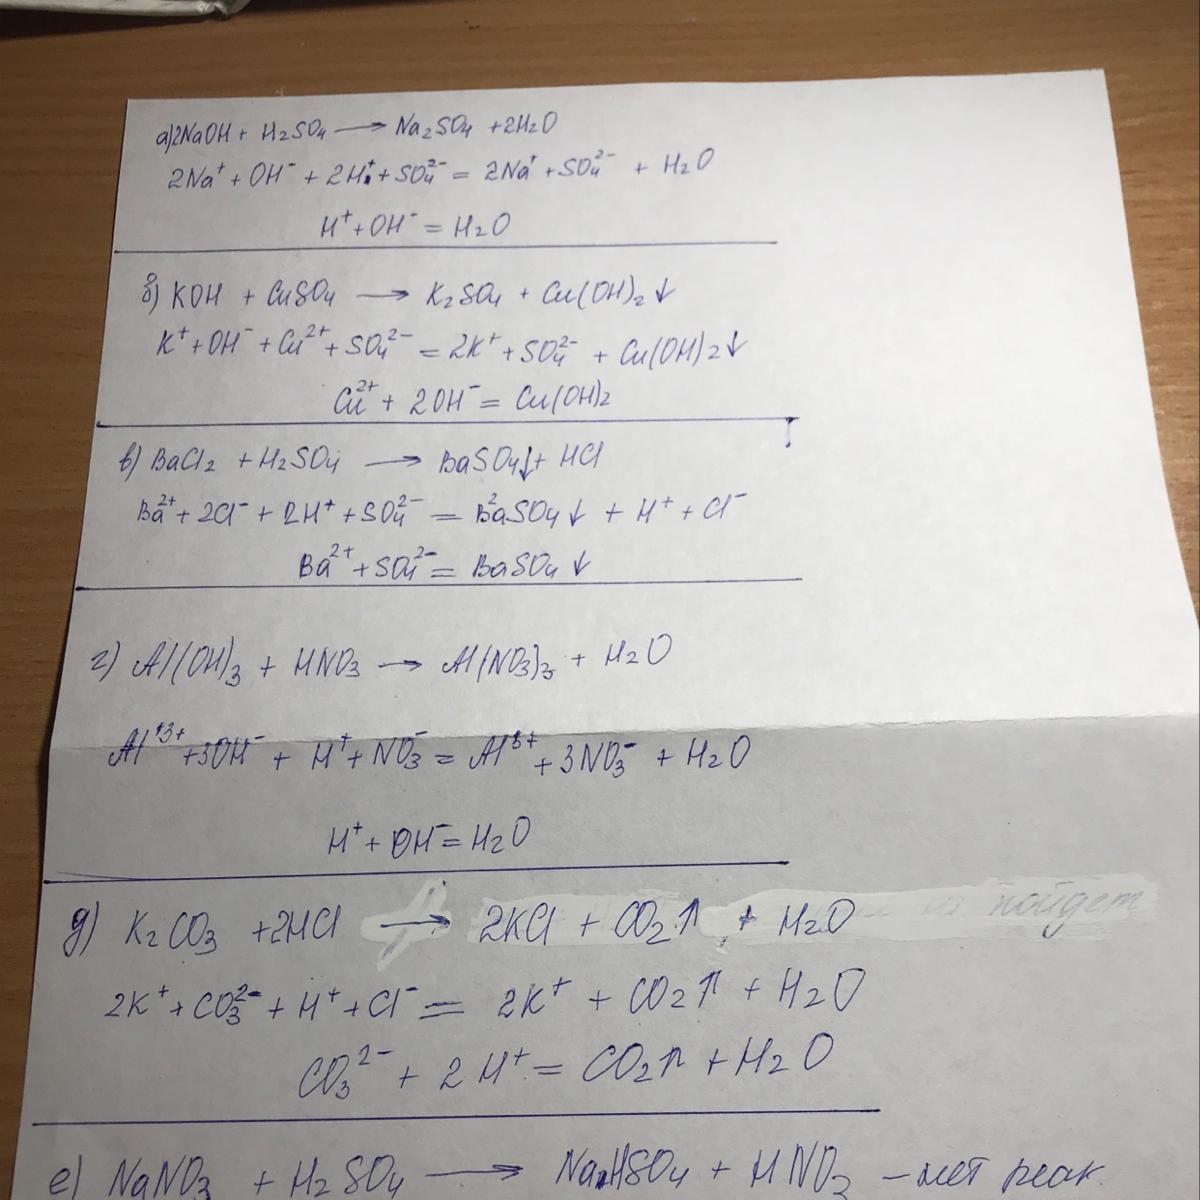 а) 2NaOH + H₂SO₄ → Na₂SO₄ + 2H₂O
2Na⁺ + OH⁻ + 2H⁺ + SO₄²⁻ = 2Na⁺ + SO₄²⁻ + H₂O
H⁺ + OH⁻ = H₂O
б) KOH + CuSO₄ → K₂SO₄ + Cu(OH)₂↓
K⁺ + OH⁻ + Cu²⁺ + SO₄²⁻ = 2K⁺ + SO₄²⁻ + Cu(OH)₂↓
Cu²⁺ + 2OH⁻ = Cu(OH)₂
в) BaCl₂ + H₂SO₄ → BaSO₄↓ + HCl
Ba²⁺ + 2Cl⁻ + 2H⁺ + SO₄²⁻ = Ba²SO₄↓ + H⁺ + Cl⁻
Ba²⁺ + SO₄²⁻ = BaSO₄↓
г) Al(OH)₃ + HNO₃ → Al(NO₃)₃ + H₂O
Al⁺³⁺ + 3OH⁻ + H⁺ + NO₃⁻ = Al³⁺ + 3NO₃⁻ + H₂O
H⁺ + OH⁻ = H₂O
д) K₂CO₃ + 2HCl → 2KCl + CO₂↑ + H₂O пойдет
2K⁺ + CO₃²⁻ + H⁺ + Cl⁻ = 2K⁺ + CO₂↑ + H₂O
CO₃²⁻ + 2H⁺ = CO₂↑ + H₂O
е) NaNO₃ + H₂SO₄ → NaHSO₄ + HNO₃ – нет реак.